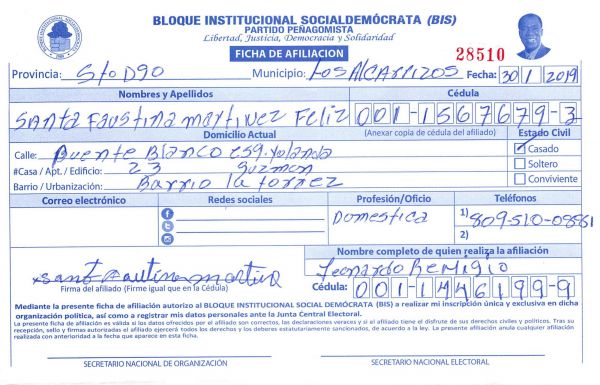 BLOQUE INSTITUCIONAL SOCIALDEMÓCRATA (BIS)
PARTIDO PEÑAGOMISTA
Libertad, Justicia, Democracia y Solidaridad
FICHA DE AFILIACION
28510
Provincia: Sto Dgo Municipio: Los Alcarrizos Fecha: 30/1/2019
Nombres y Apellidos Cédula
Santa Faustina Martinez Feliz 001-1567679-3
Domicilio Actual (Anexar copia de cédula del afiliado) Estado Civil
Calle: Puente Blanco esq. Yolanda Casado
#Casa / Apt. / Edificio: 23 Guzman Soltero
Barrio / Urbanización: Barrio la torrez Conviviente
Correo electrónico Redes sociales Profesión/Oficio Teléfonos
Domestica 1) 809-510-0881
2)
Nombre completo de quien realiza la afiliación
Leonardo Remigio
Firma del afiliado (Firme igual que en la Cédula) Cédula: 001-1446199-9
Mediante la presente ficha de afiliación autorizo al BLOQUE INSTITUCIONAL SOCIAL DEMÓCRATA (BIS) a realizar mi inscripción única y exclusiva en dicha
organización política, así como a registrar mis datos personales ante la Junta Central Electoral.
La presente ficha de afiliación es válida si los datos ofrecidos por el afiliado son correctos, las declaraciones veraces y si el afiliado tiene el disfrute de sus derechos civiles y políticos. Tras su
recepción, sello y firmas autorizadas el afiliado ejercerá todos los derechos y los deberes estatutariamente sancionados, de acuerdo a la ley. La presente afiliación anula cualquier afiliación
realizada con anterioridad a la fecha que aparece en esta ficha.
SECRETARIO NACIONAL DE ORGANIZACIÓN SECRETARIO NACIONAL ELECTORAL